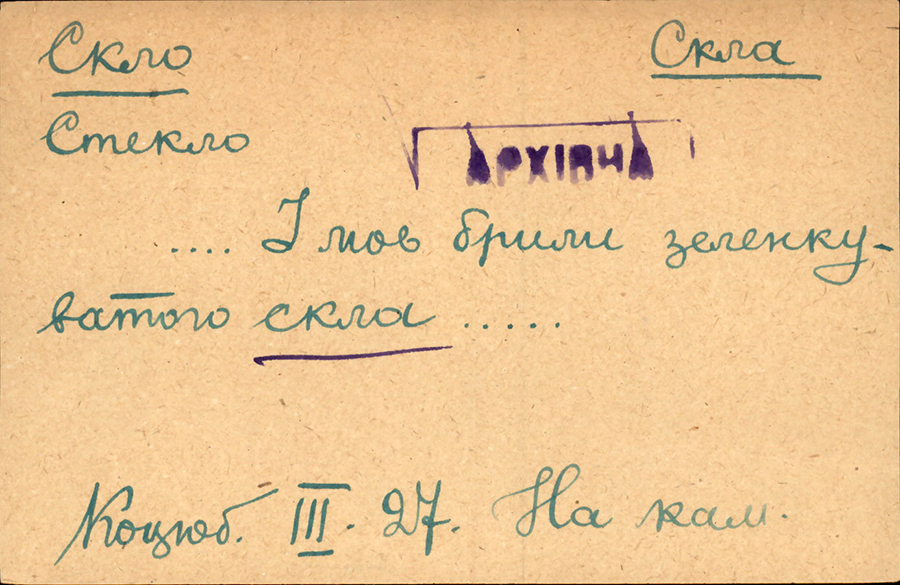 Скло Скла
Стекло
АРХІВНА
.... І мов брили зеленку-
ватого скла .....
Коцюб. III. 27. На кам.